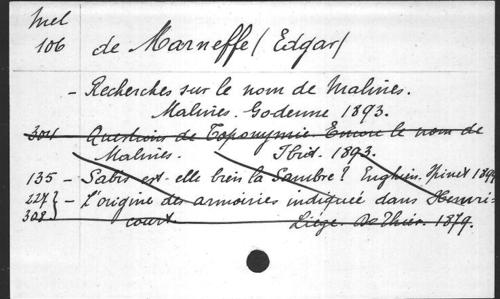 Mel
106 de Marneffe (Edgar)
- Recherches sur le nom de Malines.
Malines. Godenne 1893.
304 Questions de Toponymie Encore le nom de
Malines. Ibid. 1893.
135 - Sabis est-elle bien la Sambre? Enghien. Spinet 1894
227} - L'origine des armoiries indiquée dans Hemri-
308} court Liège. De Thier. 1879.